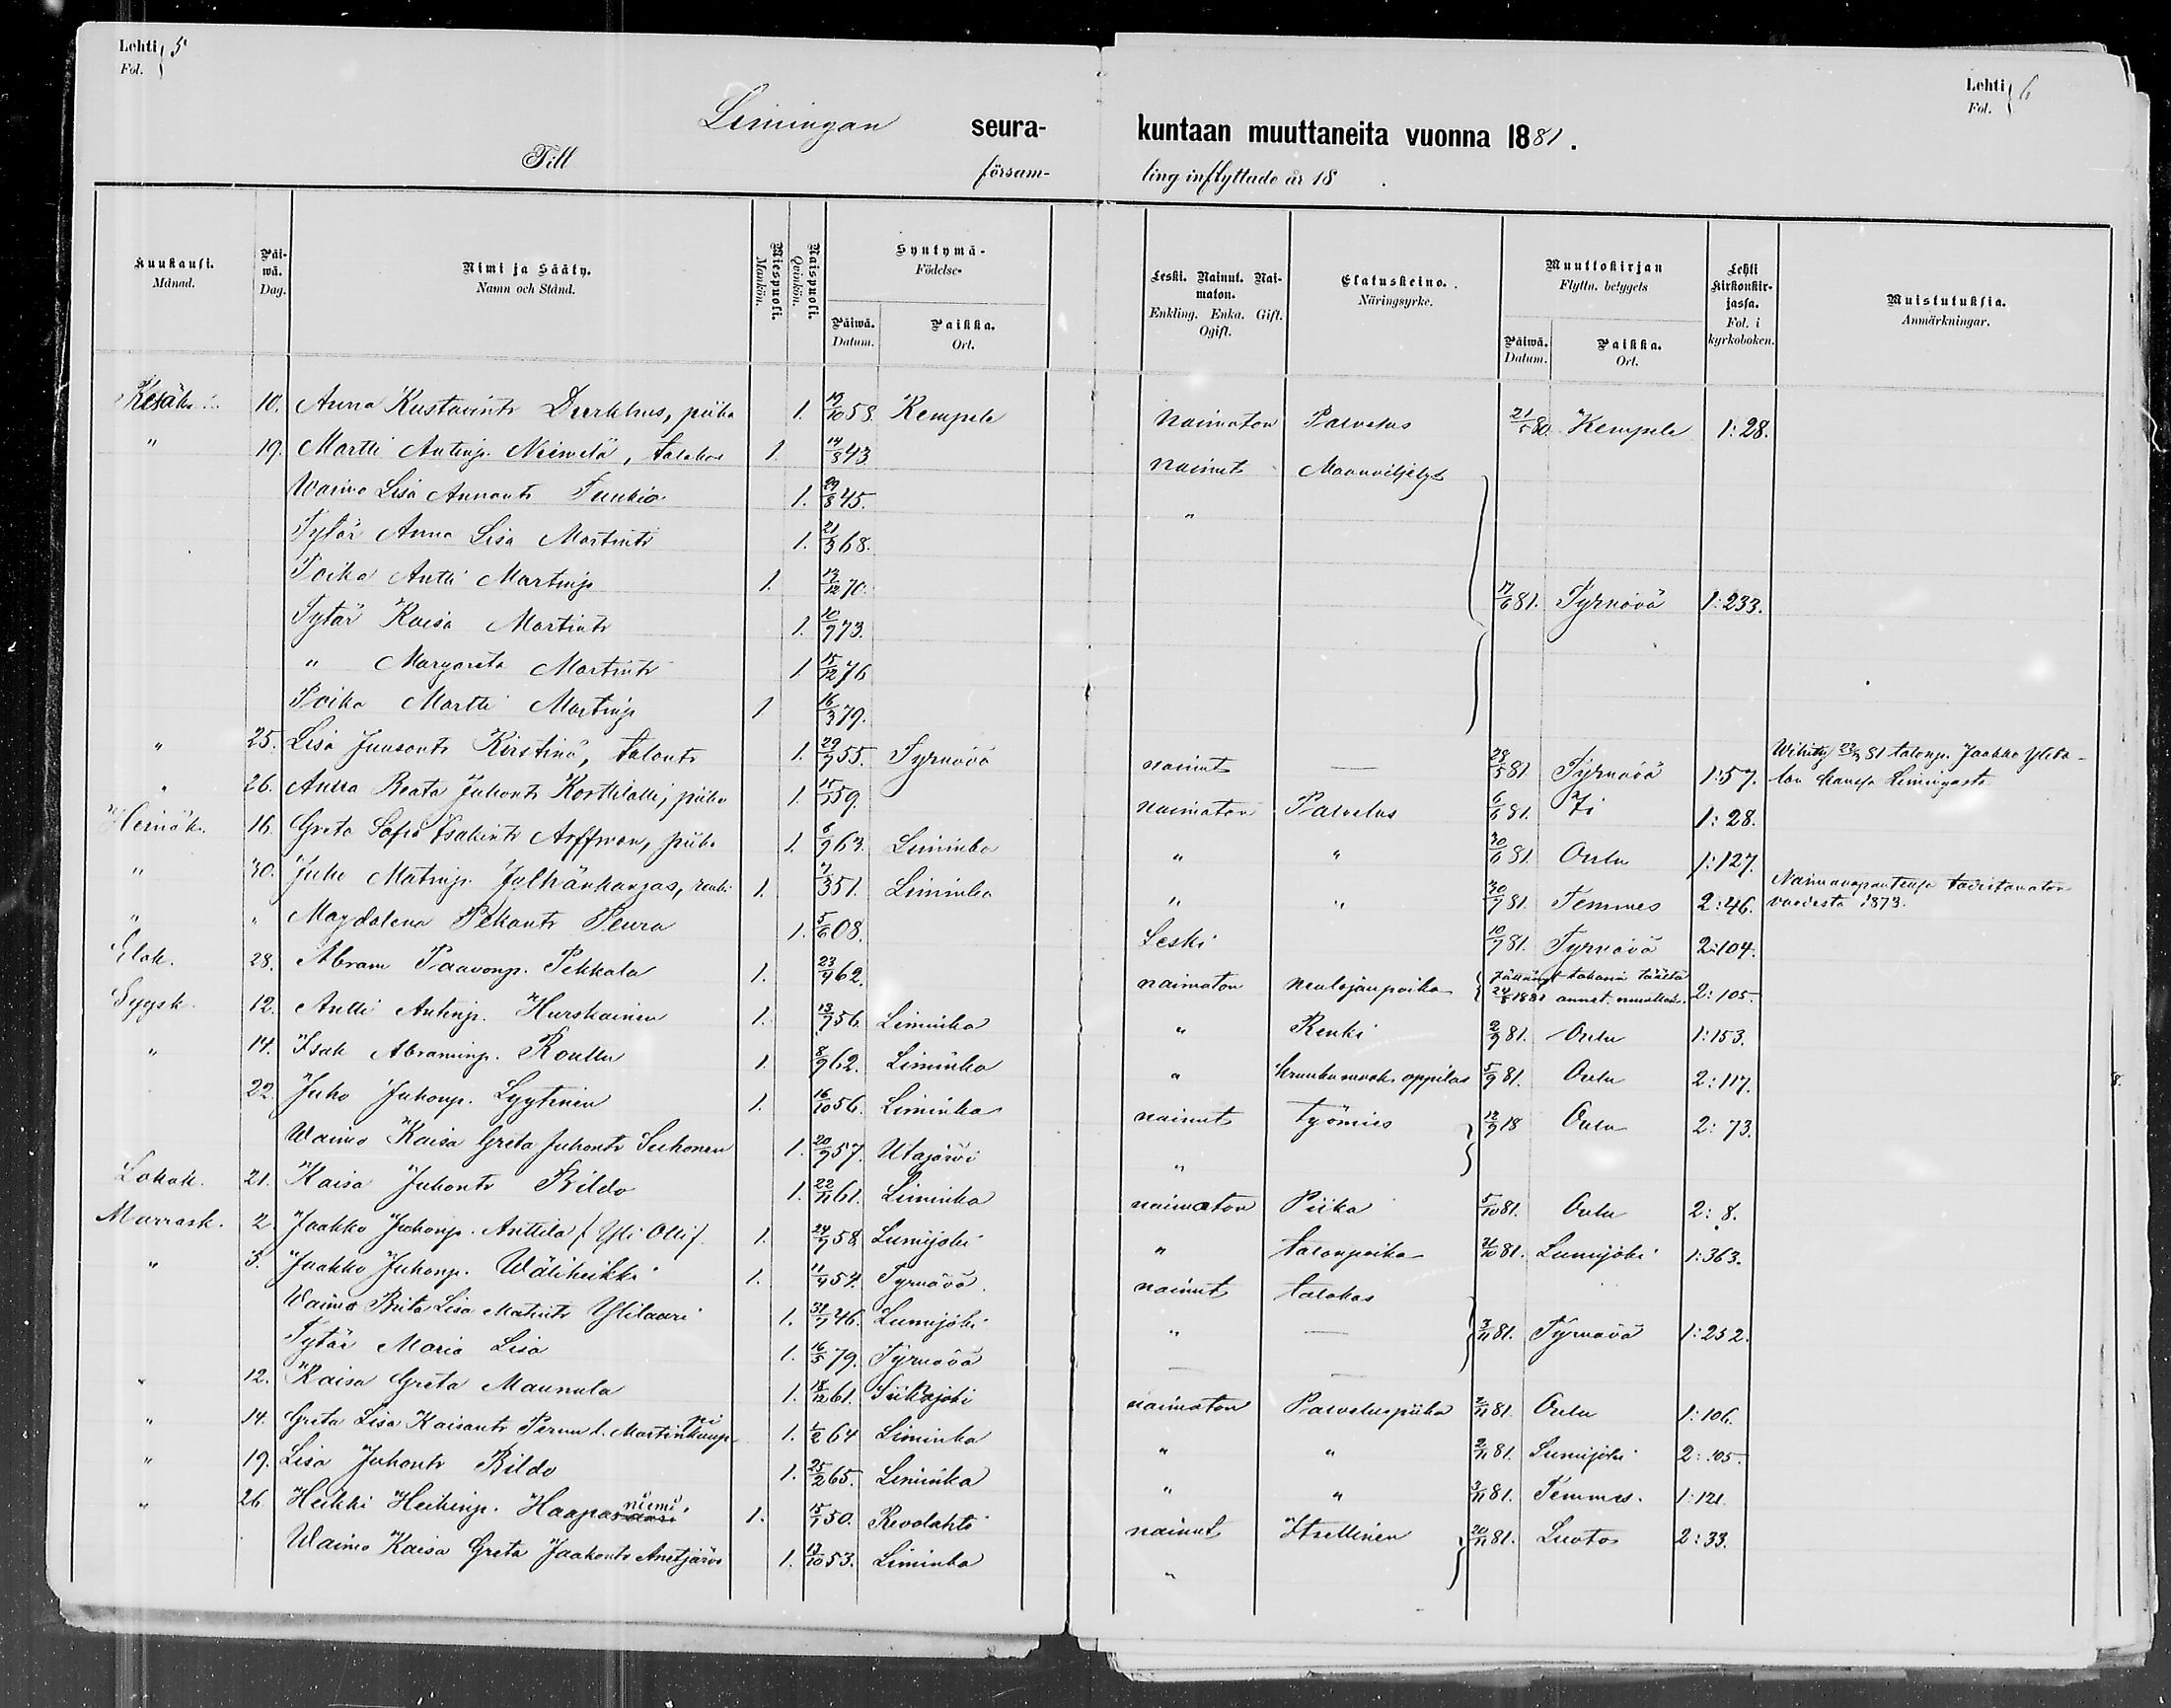 Lehti 5
Fol.
Lehti 6
Fol.
Limingan seura- kuntaan muuttaneita vuonna 1881.
Till försam- ling inflyttade år 18 .
Kuukausi. Månad. Päiwä. Dag. Nimi ja Sääty. Namn och Stånd. Miespuoli. Mankön. Naispuoli. Qvinkön. Syntymä- Födelse- Päiwä. Datum. Paikka. Ort. Leski. Nainut. Naimaton. Enkling. Enka. Gift. Ogift. Elatuskeino. Näringsyrke. Muuttokirjan Flyttn. betygets Päiwä. Datum. Paikka. Ort. Lehti kirkonkirjassa. Fol. i kyrkoboken. Muistutuksia. Anmärkningar.
Kesäk. 10. Anna Kustavintr Durchus, piika 1. 19/10 58. Kempele naimaton Palvelus 21/5 80. Kempele 1:28.
" 19. Martti Antinp. Niemelä, talokas 1. 14/8 43. nainut Maanviljelys
Waimo Lisa Annantr Tuukio 1. 29/8 45. "
Tytär Anna Lisa Martintr 1. 21/3 68.
Poika Antti Martinp 1. 13/12 70. 17/6 81. Tyrnävä 1:233.
Tytär Kaisa Martintr 1. 10/9 73.
" Margareta Martintr 1 15/12 76
Poika Martti Martinp 1 16/3 79.
" 25. Lisa Juusontr Kirstinä, talontr 1. 29/7 55. Tyrnävä nainut — 28/5 81. Tyrnävä 1:57. Wihitty 23/9 81 talonp. Jaakko Ylita-
lon kanssa Limingasta
" 26. Anna Beata Juhontr Korttilalli, piika 1. 15/7 59. naimaton Palvelus 6/6 81. Ii 1:28.
Heinäk. 16. Greta Sofia Isakintr Arffman, piika 1. 6/9 63. Liminka " " 30/6 81. Oulu 1:127.
" 30. Juho Matinp. Jylhänkangas, renki 1. 7/3 51. Liminka " " 30/7 81. Temmes 2:46. Naimavapautensa todistamaton
vuodesta 1873.
" " Magdalena Pekantr Peura 1. 5/6 08. Leski 10/7 81. Tyrnävä 2:104.
Elok. 28. Abram Paavonp. Pekkala 1. 23/9 62. naimaton neulojanpoika takasin täältä
24/8 1881 annet. muuttok. 2:105.
Syysk. 12. Antti Antinp. Hurskainen 1. 13/7 56. Liminka " Renki 2/9 81. Oulu 1:153.
" 14. Isak Abraminp. Roullu 1. 8/9 62. Liminka " oppilas 5/9 81. Oulu 2:117.
22. Juho Juhonp. Lyytinen 1. 16/10 56. Liminka nainut Työmies 12/9 18 Oulu 2:73.
Waimo Kaisa Greta Juhontr Suhonen 1. 20/9 57. Utajärvi "
Lokak. 21. Kaisa Juhontr Bildo 1. 22/11 61. Liminka naimaton Piika 5/10 81. Oulu 2:8.
Marrask. 2 Jaakko Juhonp. Anttila (Yli Olli) 1. 24/9 58 Lumijoki " talonpoika 31/10 81. Lumijoki 1:363.
" 5. Jaakko Juhonp. Wäliheikki 1. 11/4 54. Tyrnävä. nainut talokas
Waimo Brita Lisa Matintr Ylilaari 1. 31/7 46. Lumijoki " — 3/11 81. Tyrnävä 1:252.
Tytär Maria Lisa 1. 16/5 79. Tyrnävä —
" 12. Kaisa Greta Maunula 1. 18/12 61. Siikajoki naimaton Palveluspiika 7/11 81. Oulu 1:106.
" 14. Greta Lisa Kaisantr Pernu l. Martinkaupi 1. 1/2 64 Liminka " " 2/11 81. Lumijoki 2:105.
" 19. Lisa Juhontr Bildo 1. 25/2 65. Liminka " " 3/11 81. Temmes. 1:121.
" 26 Heikki Heikinp. Haapaniemi. 1. 15/7 50. Revolahti nainut Itsellinen 20/11 81. Luoto 2:33.
Waimo Kaisa Greta Jaakontr Anetjärvi 1. 13/10 53. Liminka "
8.